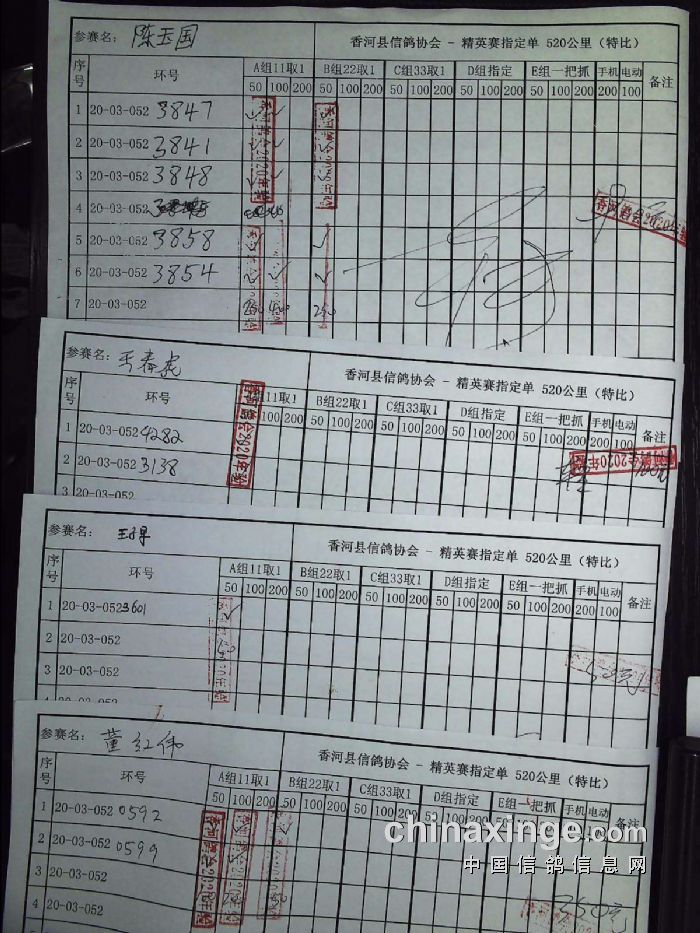 参赛名: 陈玉国 香河县信鸽协会 - 精英赛指定单 520公里（特比）
序号 环号 A组11取1 B组22取1 C组33取1 D组指定 E组一把抓 手机 电动 备注
50 100 200 50 100 200 50 100 200 50 100 200 50 100 200 200 100
1 20-03-052 3847 ✓ ✓ ✓
2 20-03-052 3841 ✓ ✓
3 20-03-052 3848 ✓ ✓
4 20-03-052
5 20-03-052 3858 ✓
6 20-03-052 3854 ✓ ✓ ✓
7 20-03-052 250
香河鸽会2020年
参赛名: 王春虎 香河县信鸽协会 - 精英赛指定单 520公里（特比）
序号 环号 A组11取1 B组22取1 C组33取1 D组指定 E组一把抓 手机 电动 备注
50 100 200 50 100 200 50 100 200 50 100 200 50 100 200 200 100
1 20-03-052 4282
2 20-03-052 3138
3 20-03-052
香河鸽会2020年
参赛名: 香河县信鸽协会 - 精英赛指定单 520公里（特比）
序号 环号 A组11取1 B组22取1 C组33取1 D组指定 E组一把抓 手机 电动 备注
50 100 200 50 100 200 50 100 200 50 100 200 50 100 200 200 100
1 20-03-052 3601 ✓
2 20-03-052
3 20-03-052
参赛名: 董红伟 香河县信鸽协会 - 精英赛指定单 520公里（特比）
序号 环号 A组11取1 B组22取1 C组33取1 D组指定 E组一把抓 手机 电动 备注
50 100 200 50 100 200 50 100 200 50 100 200 50 100 200 200 100
1 20-03-052 0592
2 20-03-052 0599
3 20-03-052
4 20-03-052
350元
chinaxinge.com
中国信鸽信息网